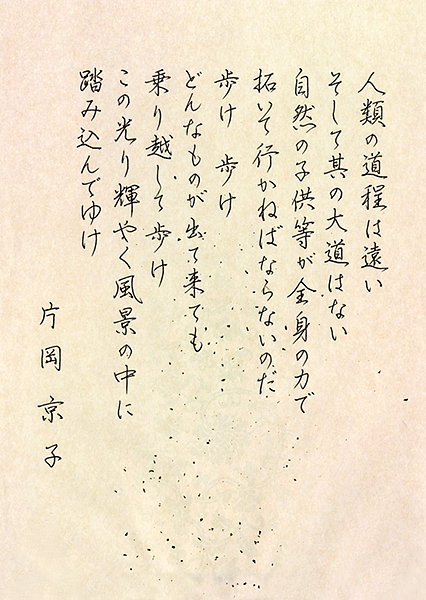 人類の道程は遠い
そして其の大道はない
自然の子供等が全身の力で
拓いて行かねばならないのだ
歩け 歩け
どんなものが出て来ても
乗り越して歩け
この光り輝やく風景の中に
踏み込んでゆけ
片岡京子